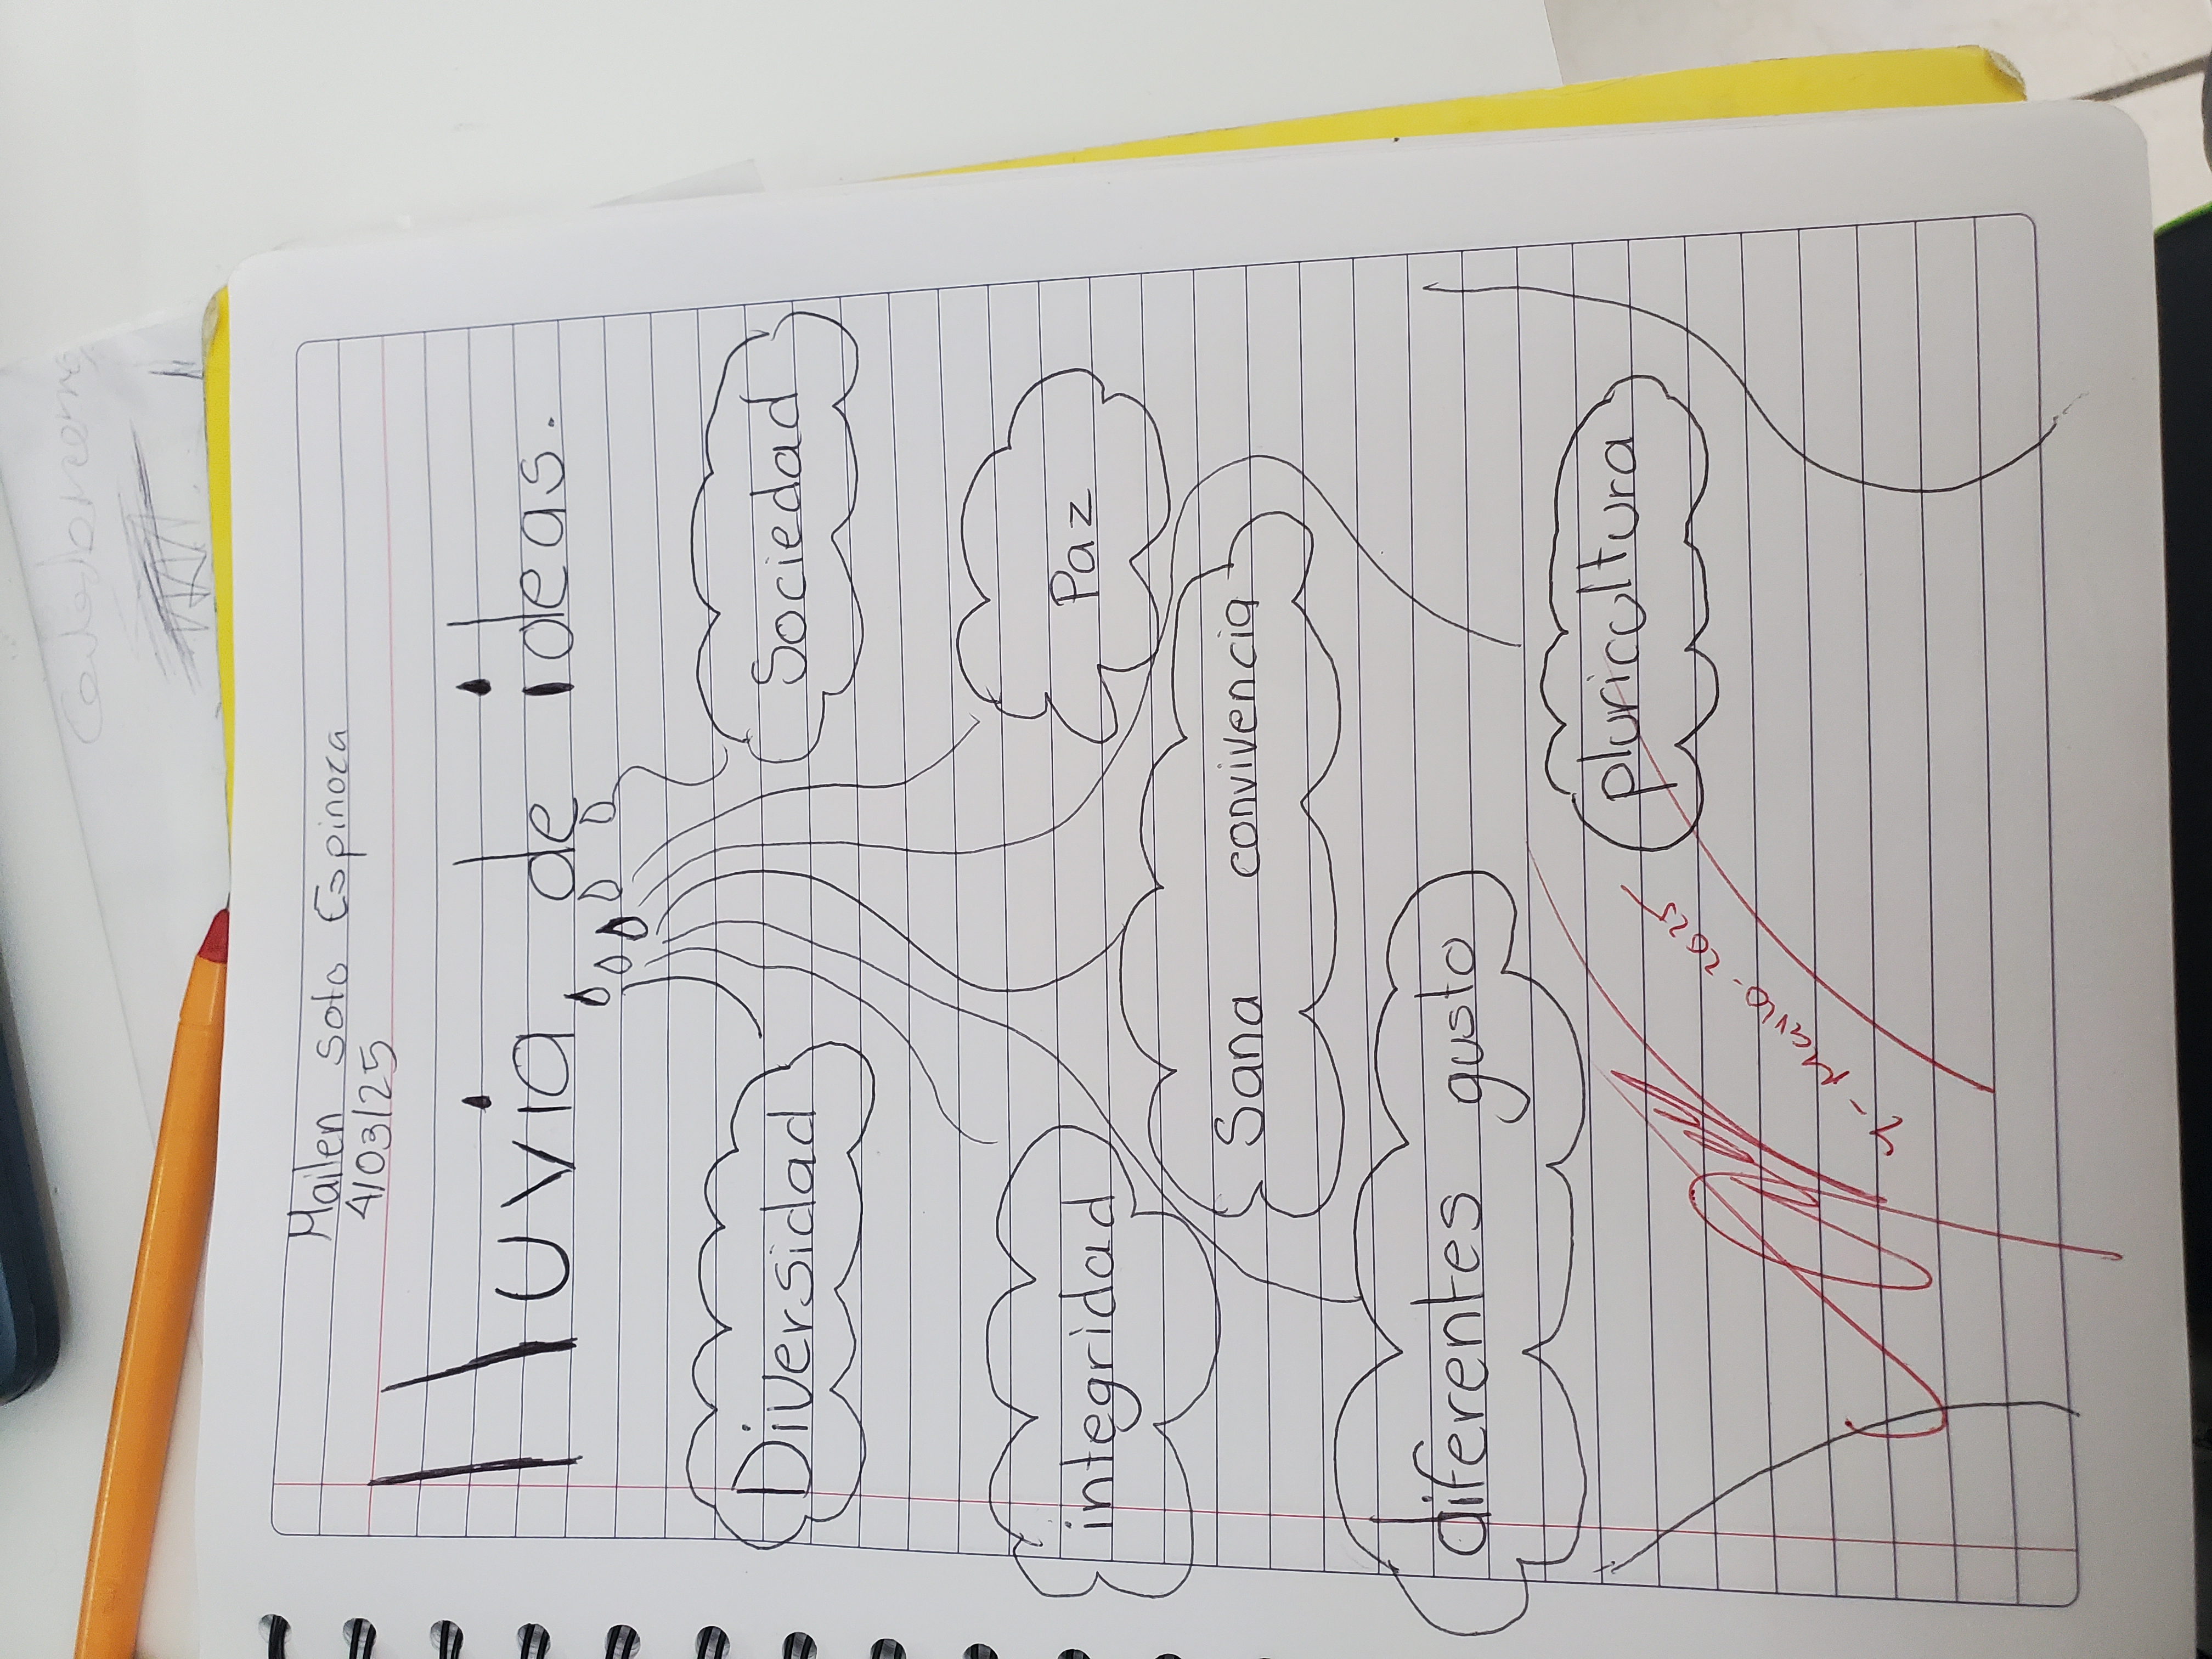 Mailen Soto Espinoza
4/03/25
lluvia de ideas.
Diversidad
Sociedad
integridad
Paz
Sana convivencia
diferentes gusto
pluricultura